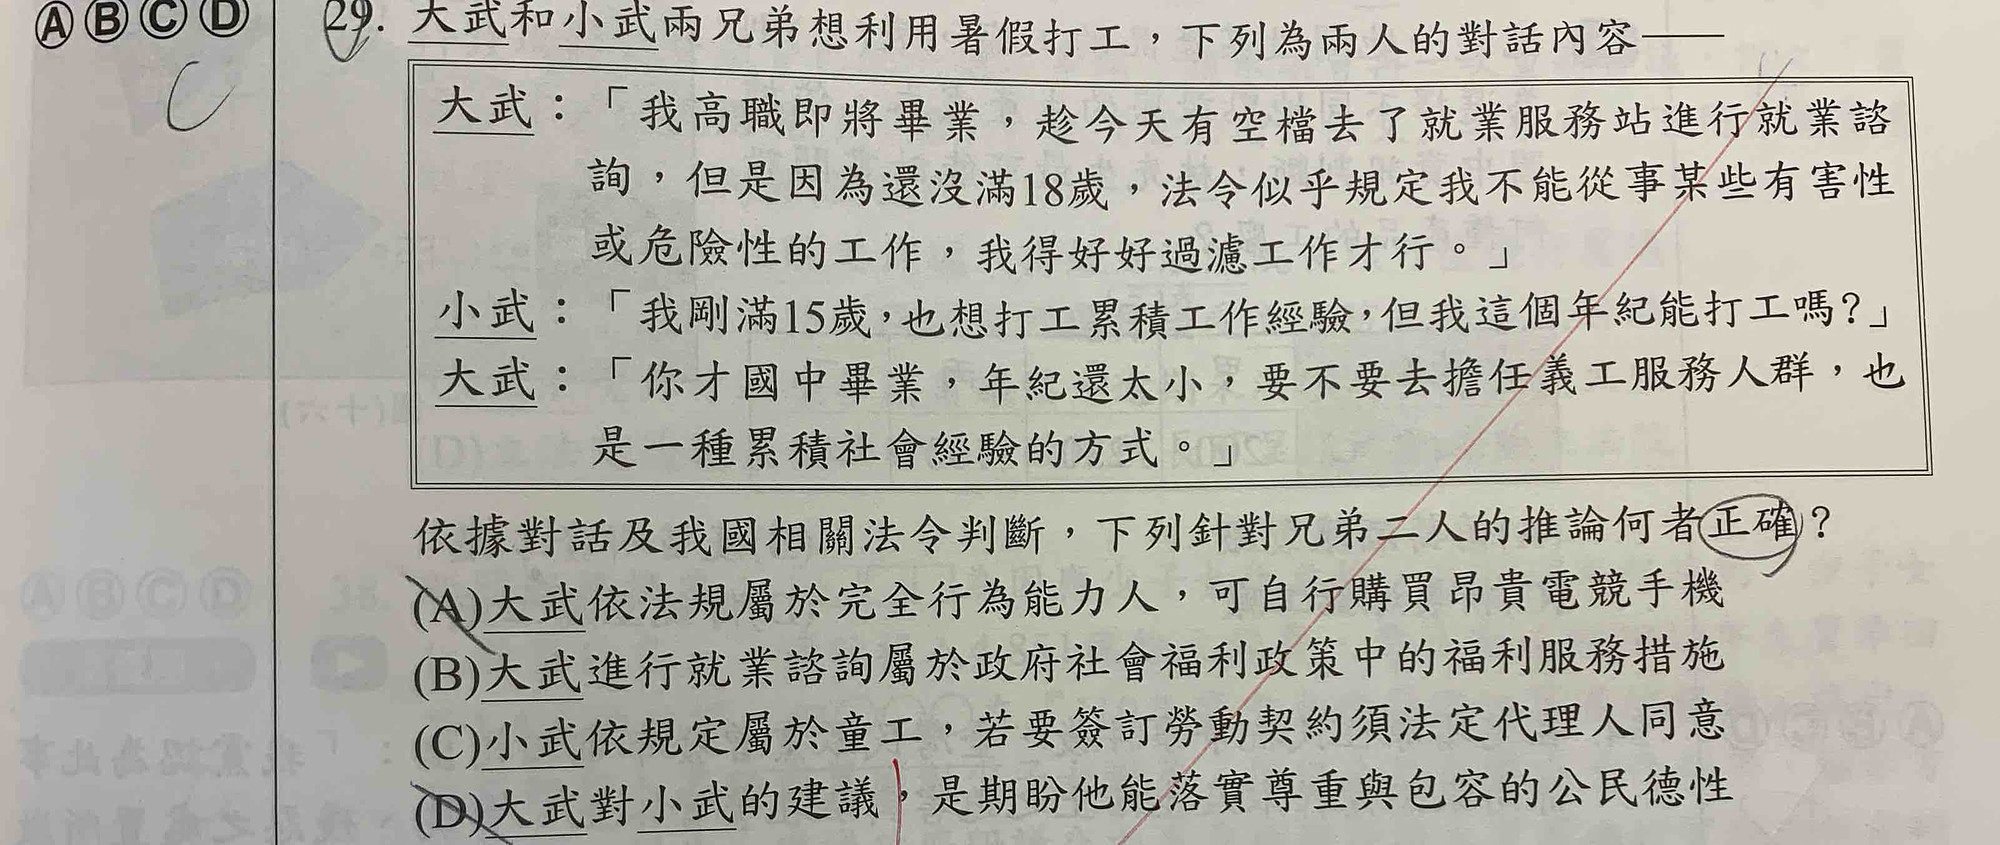 ⒶⒷⒸⒹ 29. 大武和小武兩兄弟想利用暑假打工，下列為兩人的對話內容——
C
大武：「我高職即將畢業，趁今天有空檔去了就業服務站進行就業諮
詢，但是因為還沒滿18歲，法令似乎規定我不能從事某些有害性
或危險性的工作，我得好好過濾工作才行。」
小武：「我剛滿15歲，也想打工累積工作經驗，但我這個年紀能打工嗎？」
大武：「你才國中畢業，年紀還太小，要不要去擔任義工服務人群，也
是一種累積社會經驗的方式。」
依據對話及我國相關法令判斷，下列針對兄弟二人的推論何者正確？
(A)大武依法規屬於完全行為能力人，可自行購買昂貴電競手機
(B)大武進行就業諮詢屬於政府社會福利政策中的福利服務措施
(C)小武依規定屬於童工，若要簽訂勞動契約須法定代理人同意
(D)大武對小武的建議，是期盼他能落實尊重與包容的公民德性